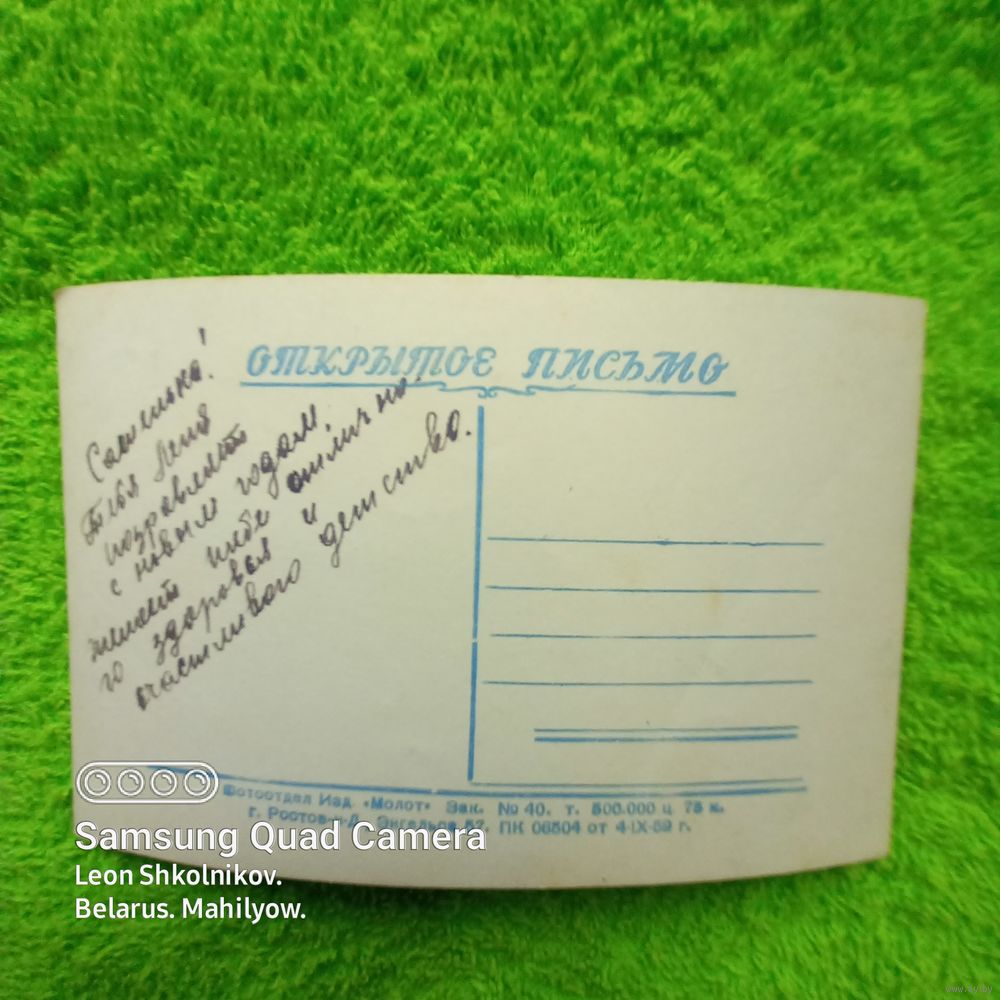 ОТКРЫТОЕ ПИСЬМО
Сашенька!
Тебя Леня
поздравляет
с новым годом,
желает тебе отлично-
го здоровья и
счастливого детства.
Фотоотдел Изд. «Молот» Зак. № 40. т. 500.000 ц. 75 к.
г. Ростов-н-Д. Энгельса 52. ПК 06504 от 4-IX-59 г.
Samsung Quad Camera
Leon Shkolnikov.
Belarus. Mahilyow.
www.ay.by